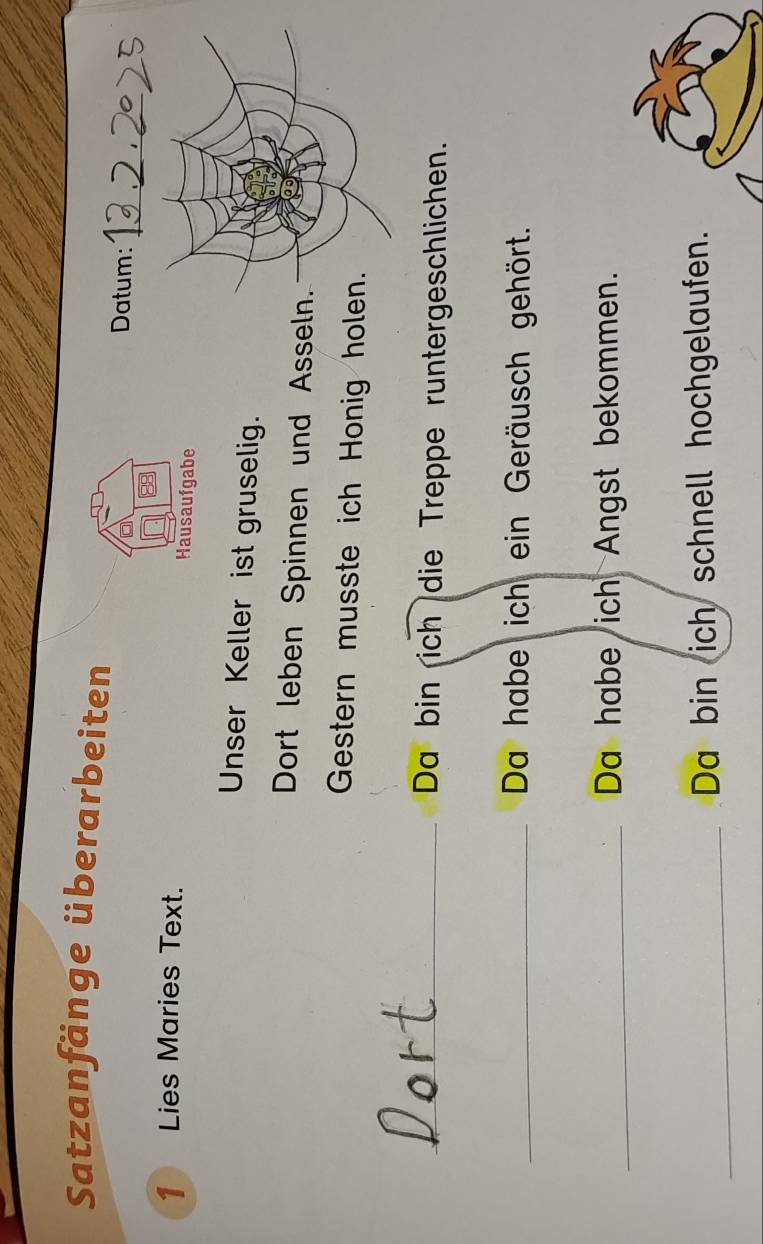 Satzanfänge überarbeiten
Datum: 13.2.2025
Hausaufgabe
1 Lies Maries Text.
Unser Keller ist gruselig.
Dort leben Spinnen und Asseln.
Gestern musste ich Honig holen.
Dort Da bin ich die Treppe runtergeschlichen.
Da habe ich ein Geräusch gehört.
Da habe ich Angst bekommen.
Da bin ich schnell hochgelaufen.